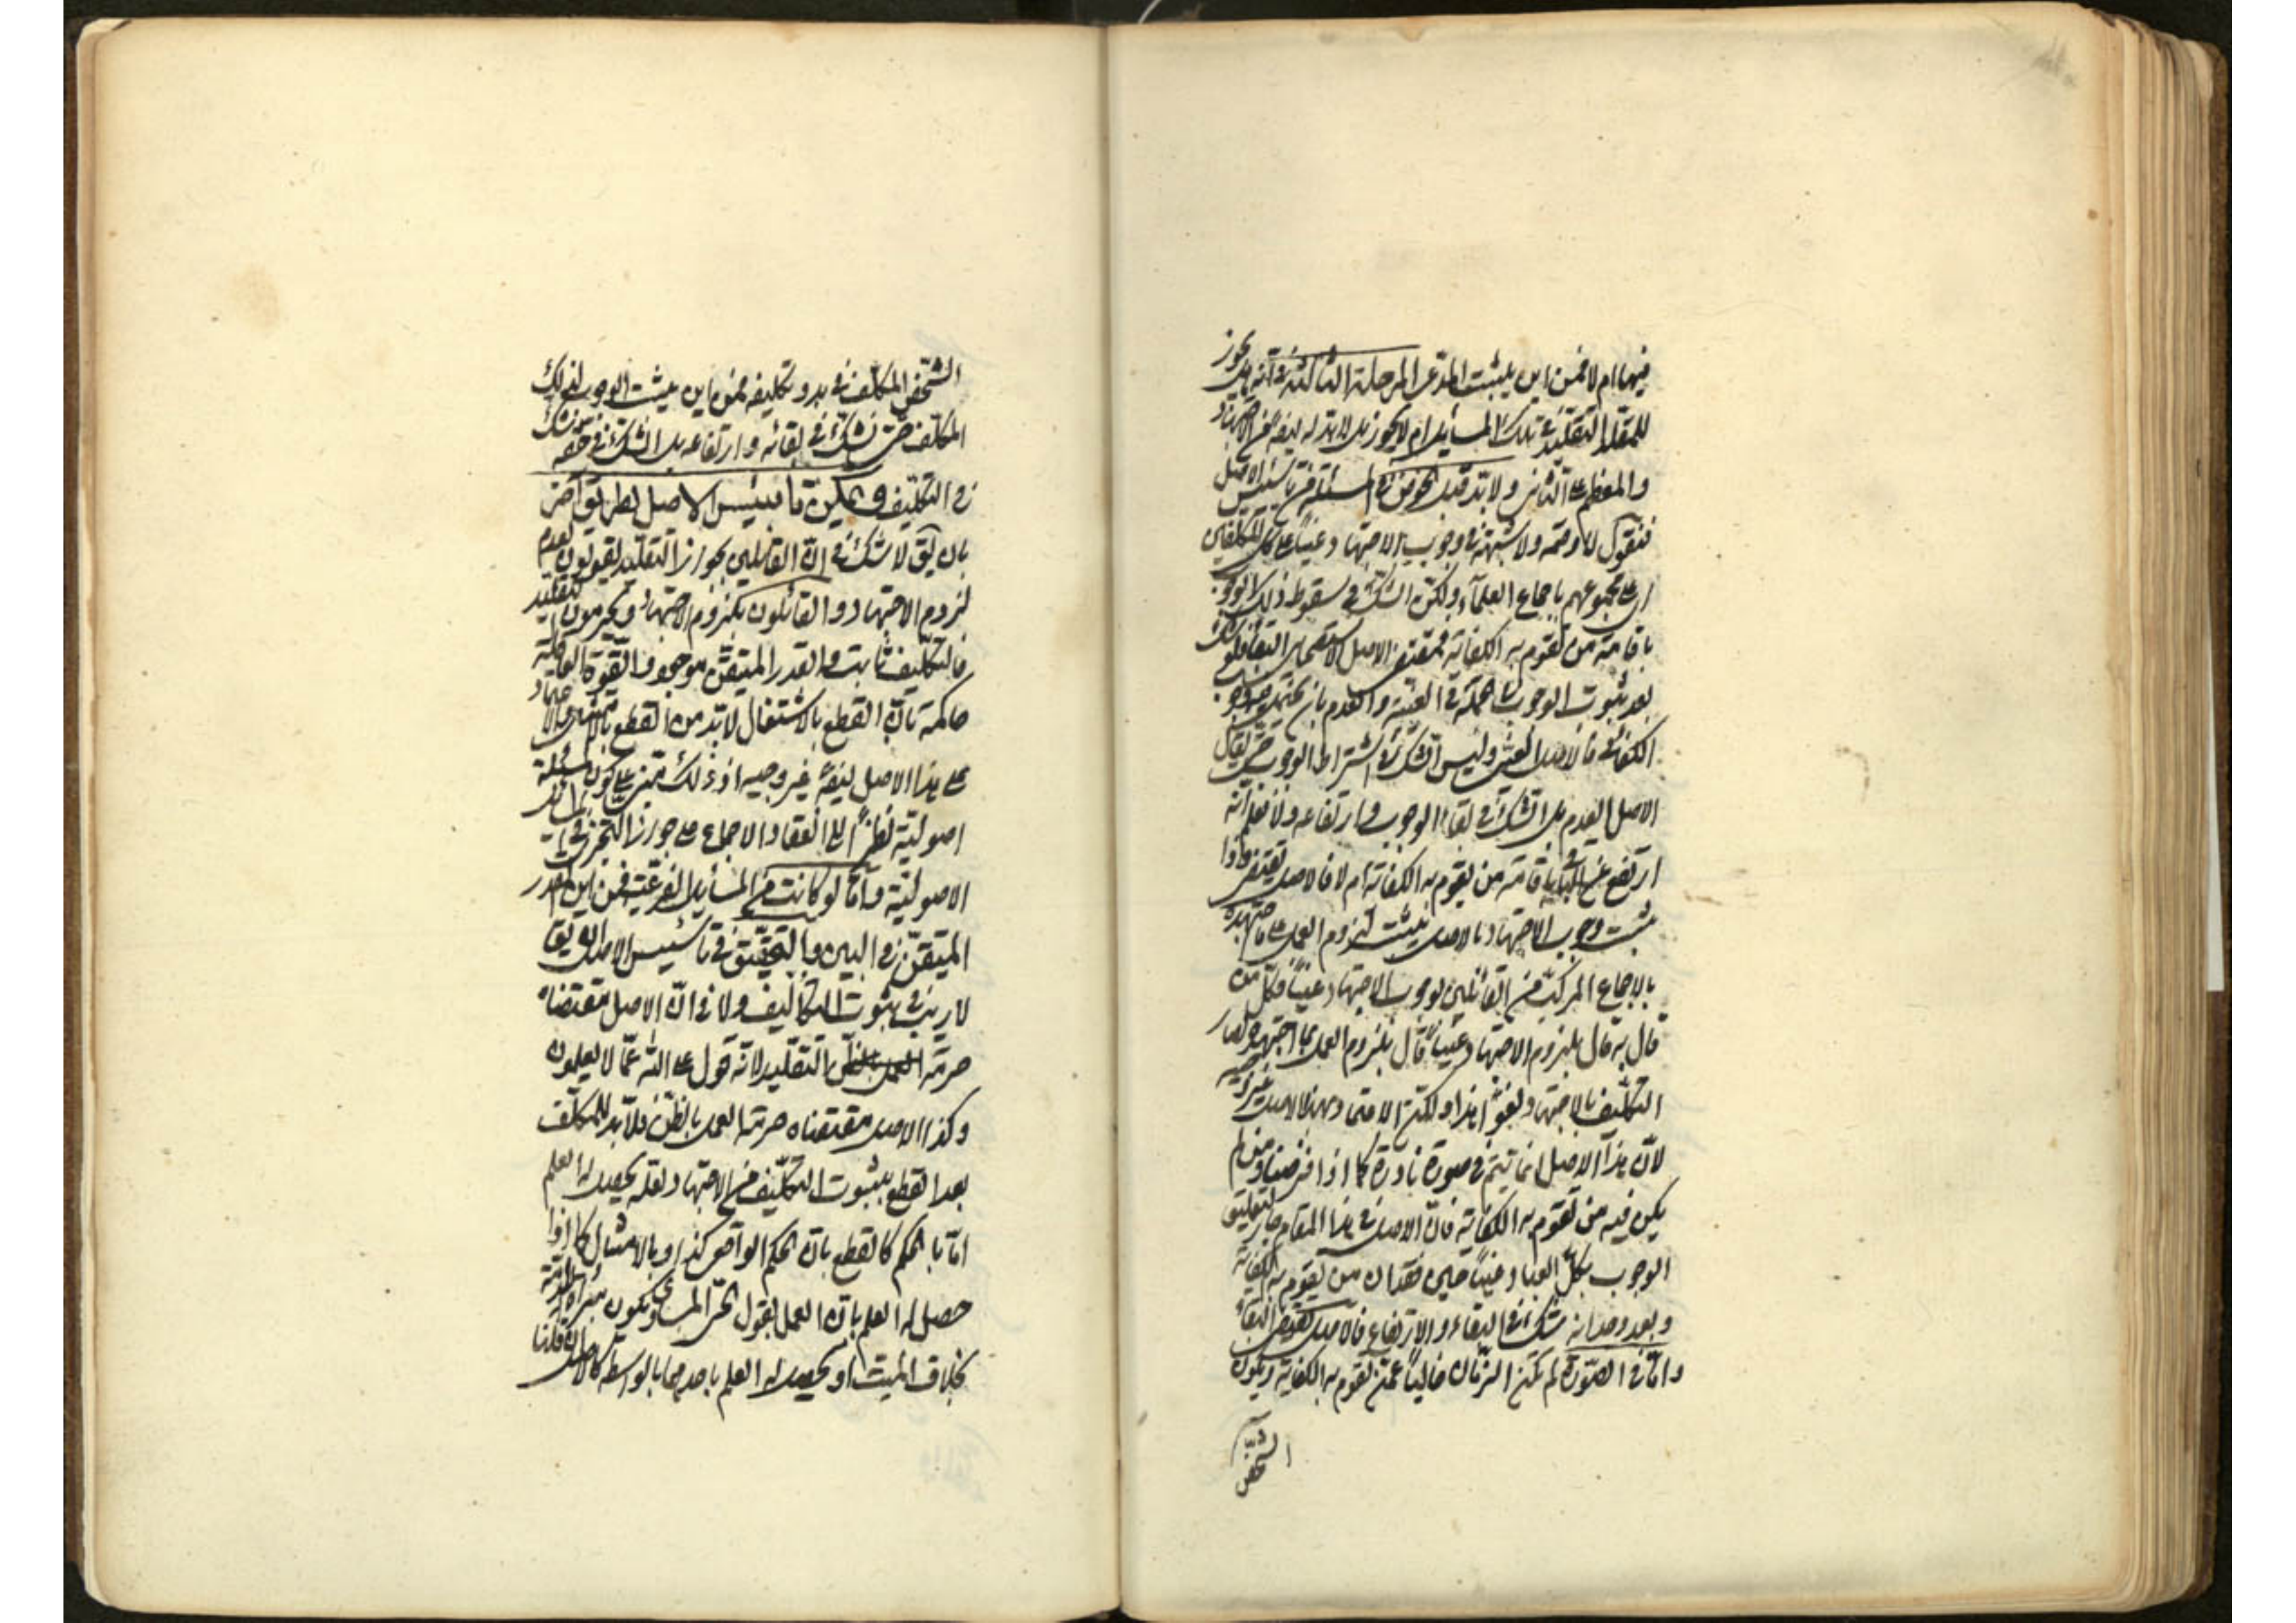 فيها ام لا فمن اين يثبت المدعى المرحلة الثالثة في انه هل يجوز
للمقلد التقليد في تلك المسائل ام لا يجوز بل لا بد له فيها من الاجتهاد
والمعظم على الثاني ولا بد قبل الخوض في المسئلة من تاسيس الاصل
فنقول لا وصمة ولا شبهة في وجوب الاجتهاد عينا على كل المكلفين
اى على مجموعهم باجماع العلمآء ولكن الشك في سقوط ذلك الوجوب
باقامة من تقوم به الكفاية فمقتضى الاصل الاستصحاب البقاء
بعد ثبوت الوجوب في الجملة في العينية والعدم بان يحتمل
الكفائى فالاصل العينى وليس الشك في اشتراط الوجوب حتى يقال
الاصل العدم بل الشك في بقاء الوجوب وارتفاعه ولا نعلم انه
ارتفع عن الباقى باقامة من يقوم به الكفاية ام لا فالاصل يقتضى فاذا
ثبت وجوب الاجتهاد بالاصل يثبت لزوم العمل على ما اجتهده
بالاجماع المركب فمن القائلين بوجوب الاجتهاد عينا فكل من
قال به قال بلزوم الاجتهاد عينا قال بلزوم العمل بما اجتهده لصار
التكليف بالاجتهاد لغوا هذا ولكن الاعتماد بهذا الاصل غير وجيه
لان هذا الاصل انما يتم في صورة نادرة كما اذا فرضنا زمن لم
يكن فيه من تقوم به الكفاية فان الاصل في هذا المقام جار لتعليق
الوجوب بكل العباد عينا حين فقدان من يقوم به الكفاية
وبعد وجدانه شك في البقاء والارتفاع فالاصل يقتضى البقاء
واما في الصورة لم يكن الزمان خاليا عمن تقوم به الكفاية ويكون
الشخص
الشخص المكلف في بدو تكليفه فمن اين يثبت الوجوب لذلك
المكلف حتى نشك في بقائه وارتفاعه بل الشك في حقه شك
في التكليف ويمكن تاسيس الاصل بطريق آخر
بان يق لا شك في ان القائلين بجواز التقليد يقولون بعدم
لزوم الاجتهاد والقائلون بلزوم الاجتهاد يحرمون التقليد
فالتكليف ثابت والقدر المتيقن موجود والقوة العاقلة
حاكمة بان القطع بالاشتغال لا بد من القطع بالامتثال والاعتماد
على هذا الاصل ايضا غير وجيه اذ ذلك مبنى على كون المسئلة
اصولية نظرا الى انعقاد الاجماع على جواز التجزى في المسائل
الاصولية واما لو كانت من المسائل الفرعية فمن اين القدر
المتيقن في البين والتحقيق في تاسيس الاصل ان يقا
لا ريب في ثبوت التكاليف ولا في ان الاصل مقتضاه
حرمة العمل بالظن التقليد لانه قول على الله عما لا يعلمون
وكذا الاصل مقتضاه حرمة العمل بالظن فلا بد للمكلف
بعد القطع بثبوت التكليف من الاجتهاد لعله يحصل له العلم
اما بالحكم كالقطع بان الحكم الواقعى كذا او بالامتثال كما اذا
حصل له العلم بان العمل بقول الحى المساوى يكون مبرء الذمة
بخلاف الميت او يحصل له العلم باحدهما بالواسطة كالاصل ان قلنا